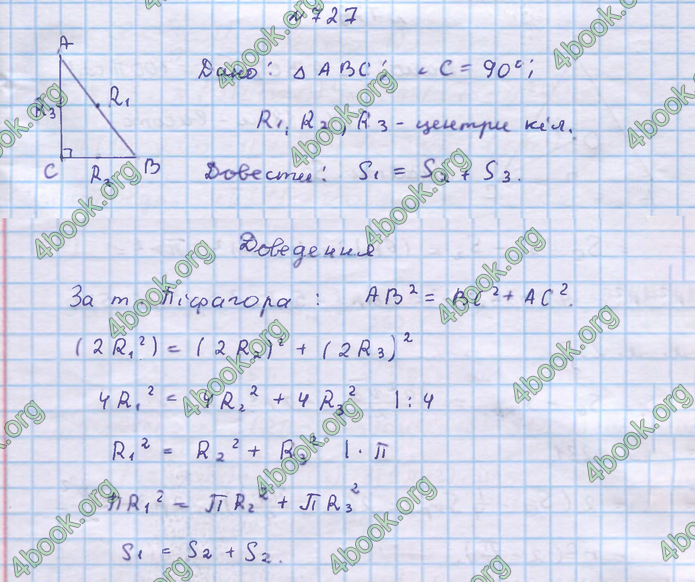 № 727
A
Дано: △ ABC; ∠ C = 90°;
R₁
R₃
R₁, R₂, R₃ - центри кіл.
C B
R₂
Довести: S₁ = S₂ + S₃.
Доведення
За т. Піфагора : AB² = BC² + AC².
(2R₁²) = (2R₂)² + (2R₃)²
4R₁² = 4R₂² + 4R₃² | : 4
R₁² = R₂² + R₃² | · π
πR₁² = πR₂² + πR₃²
S₁ = S₂ + S₂.
4book.org